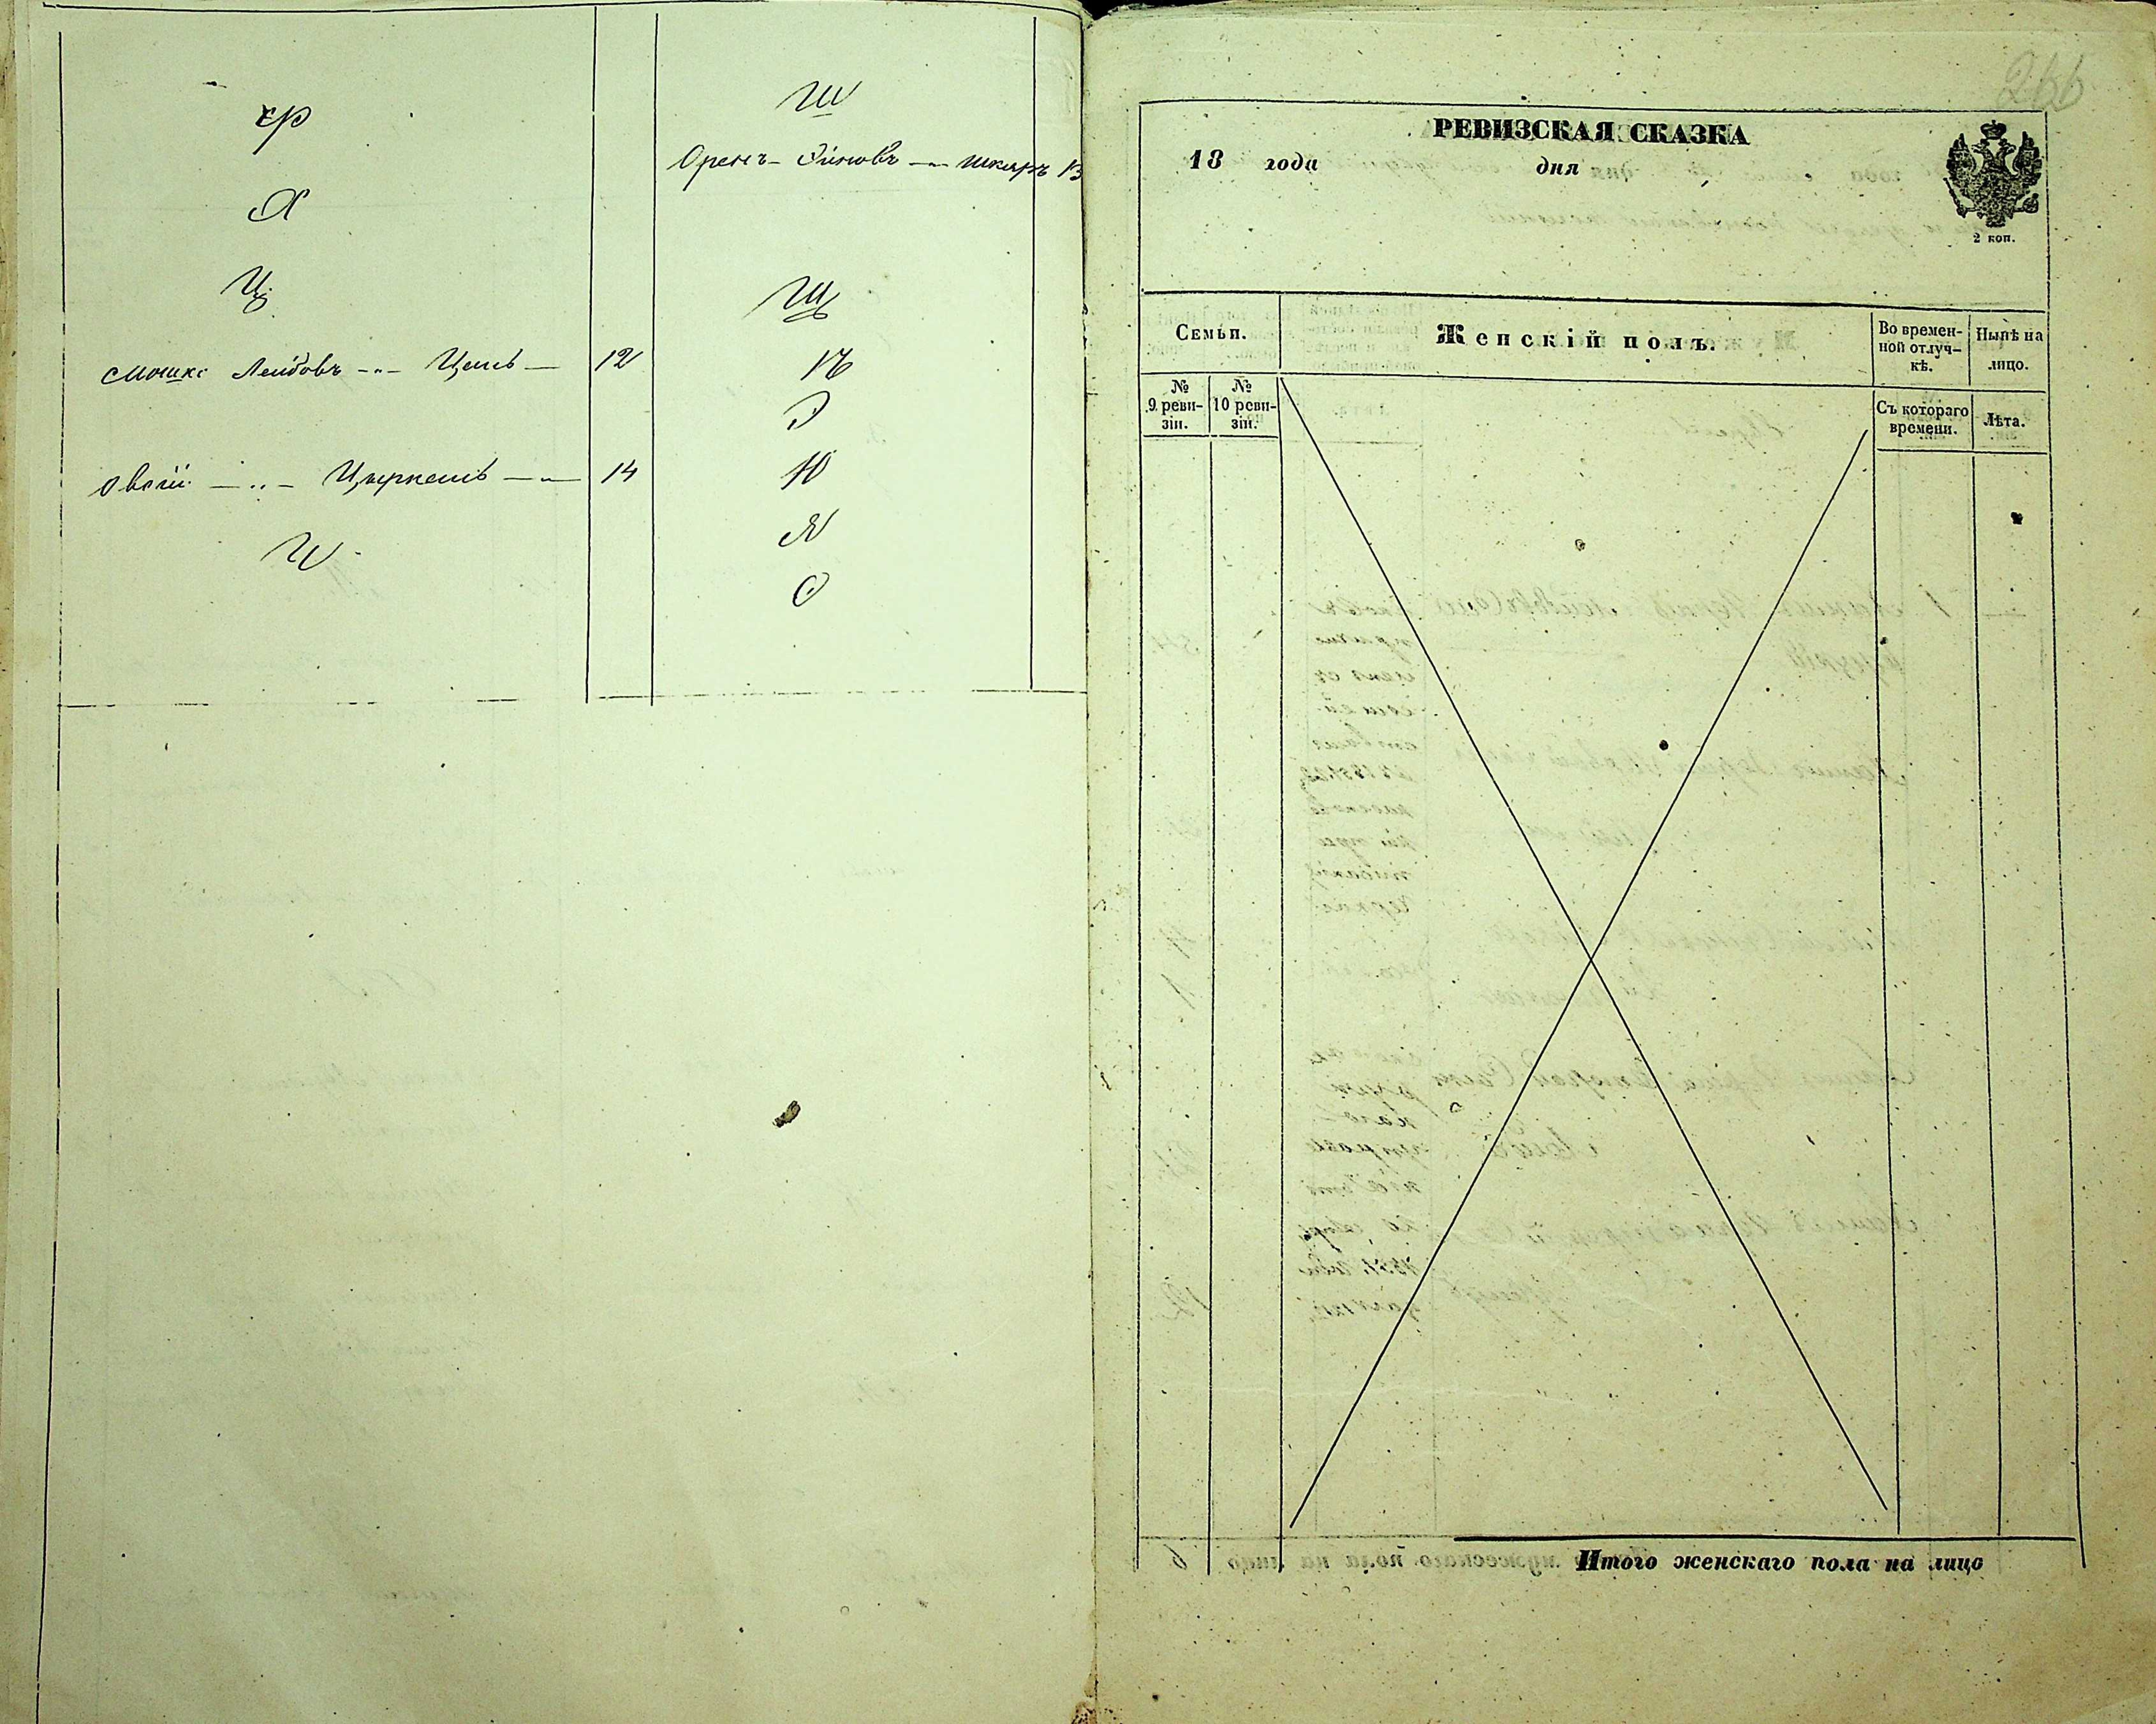 Ф
Х
Ц
Мошко Лейбовъ Цеись 12
Овсей Цыркень 14
Ч
Ш
Орелъ Эйновъ Шкляръ 13
Щ
Ѣ
Э
Ю
Я
Ѳ
266
РЕВИЗСКАЯ СКАЗКА
18 года дня
2 коп.
Семьи.
Женскій полъ.
Во времен-
ной отлуч-
кѣ.
Нынѣ на
лицо.
№
9 реви-
зіи.
№
10 реви-
зіи.
Съ котораго
времени.
Лѣта.
Итого женскаго пола на лицо